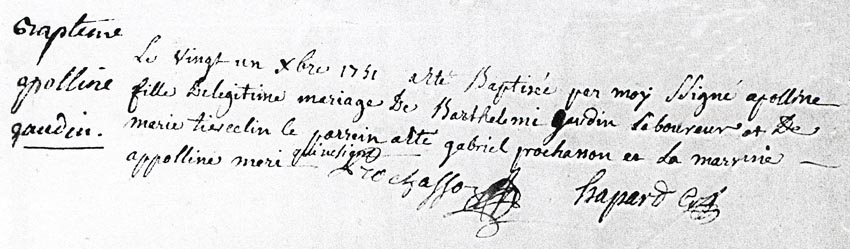 Baptême
apolline
gaudin.
Le vingt un Xbre 1751 a été Baptisée par moy Ssigné apolline
fille De legitime mariage De Barthelemi gaudin Laboureur et De
marie le parrein a été gabriel prochasson et La marrine
appolline mori qui ne signe
Prochasson
Chapard